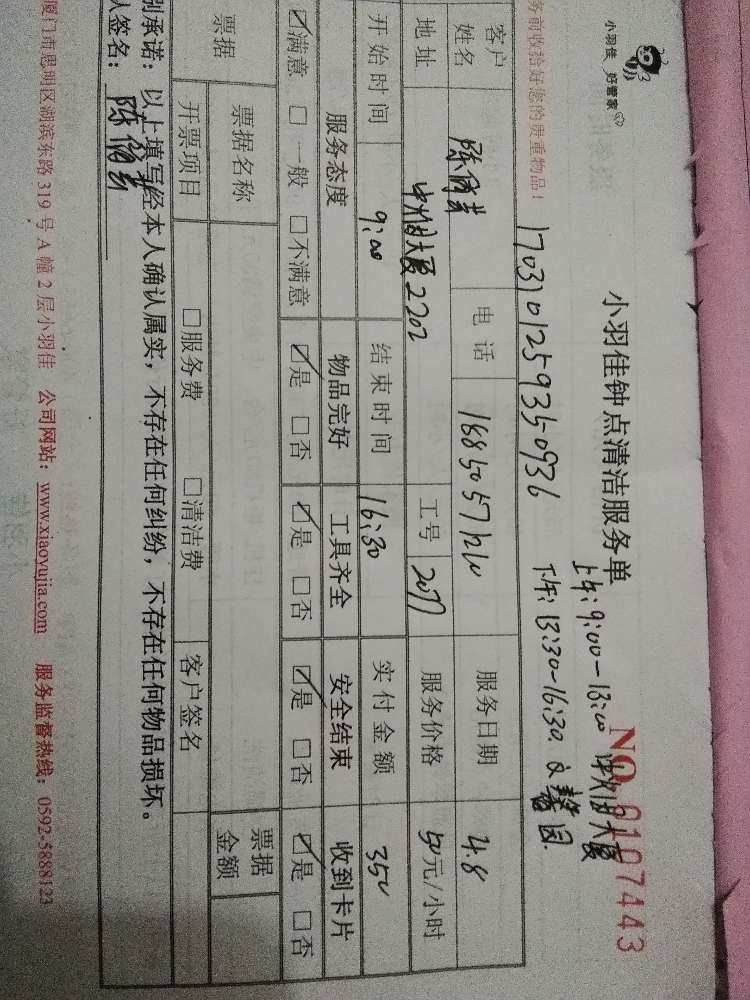 小羽佳 好管家
小羽佳钟点清洁服务单
NO 0107443
上午:9:00-13:00 中州大厦
下午:13:30-16:30 文馨园
务前收拾好您的贵重物品!
1703101259350936
客户姓名 电话 服务日期 4.8
地址 中州大厦2202 工号 2077 服务价格 50元/小时
开始时间 9:00 结束时间 16:30 实付金额 350
服务态度 物品完好 工具齐全 安全结束 收到卡片
☑满意 □一般 □不满意 ☑是 □否 ☑是 □否 ☑是 □否 ☑是 □否
票据 票据名称 票据金额
开票项目 □服务费 □清洁费 客户签名
别承诺:以上填写经本人确认属实,不存在任何纠纷,不存在任何物品损坏。
人签名:
厦门市思明区湖滨东路319号A幢2层小羽佳 公司网站:www.xiaoyujia.com 服务监督热线:0592-5888123